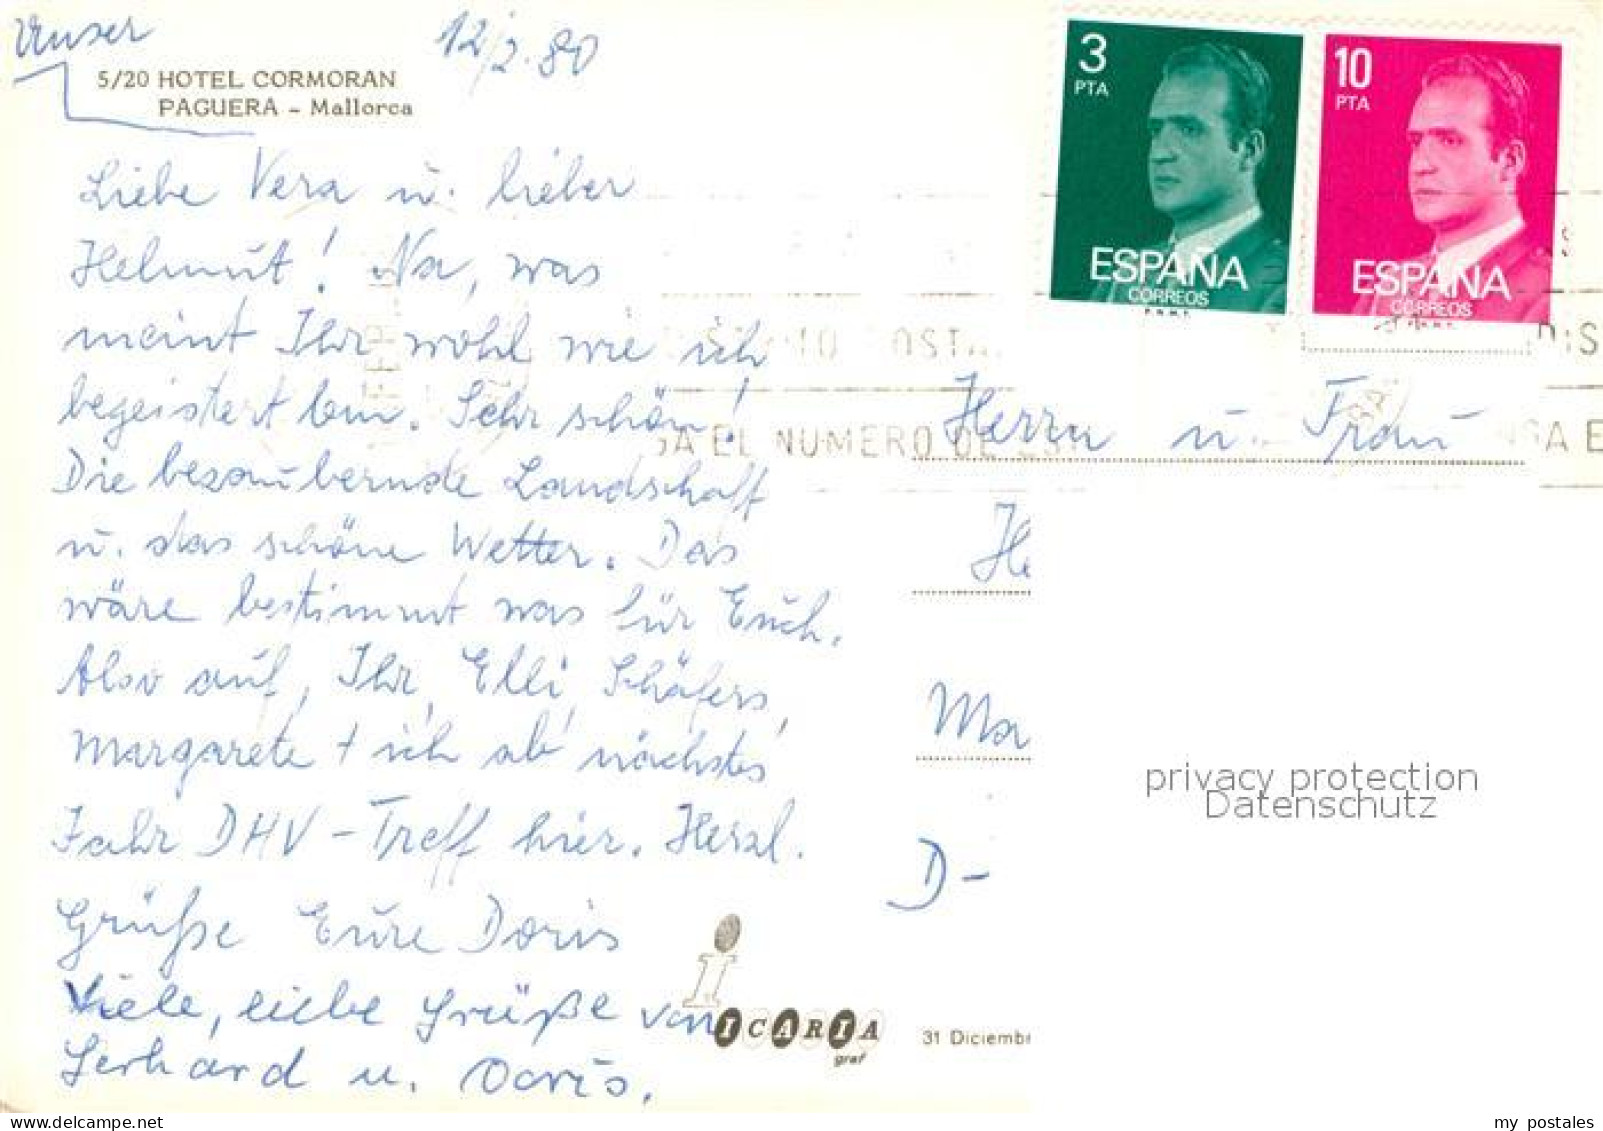 Unser
12/2.80
5/20 HOTEL CORMORAN
PAGUERA - Mallorca
Liebe Vera u. lieber
Helmut! Na, was
meint Ihr wohl wie ich
begeistert bin. Sehr schön!
Die bezaubernde Landschaft
u. das schöne Wetter. Das
wäre bestimmt was für Euch.
Also auf, Ihr, Elli, Schäfers,
Margarete + ich ab nächstes
Jahr DHV-Treff hier. Herzl.
Grüße Eure Doris
Viele, liebe Grüße von
Gerhard u. Doris.
3
PTA
ESPAÑA
CORREOS
10
PTA
ESPAÑA
CORREOS
EL NUMERO DE
Herrn u. Frau
He
Ma
D-
privacy protection
Datenschutz
i
ICARIA
graf
31 Diciemb
my postales